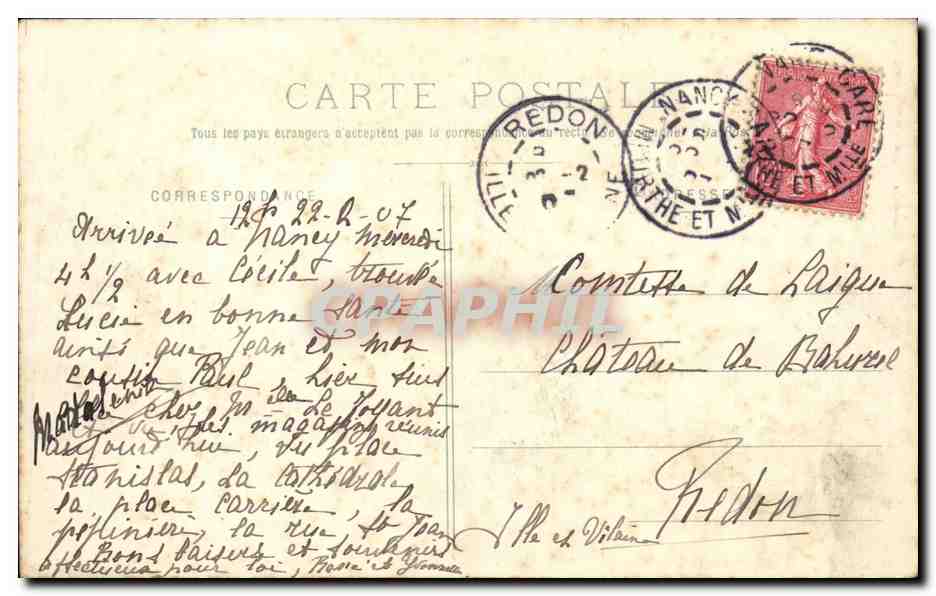 CARTE POSTALE
Tous les pays étrangers n'acceptent pas la correspondance au recto
CORRESPONDANCE
REDON
ILLE
NANCY
GARE
MEURTHE ET MLLE
22-2-07
Arrivée à Nancy Mercredi
4h 1/2 avec Cécile, trouvé
Lucie en bonne santé
ainsi que Jean et mon
cousin Paul, hier, suis
chez M elle Le Joyant
et vu les magasins réunis
aujourd'hui, vu place
Stanislas, La Cathédrale
la place Carrière, la
pépinière, la rue St Jean
Bons baisers et souvenirs
affectueux pour toi,
Comtesse de Laigue
Château de
Redon
Ille et Vilaine
CPAPHIL